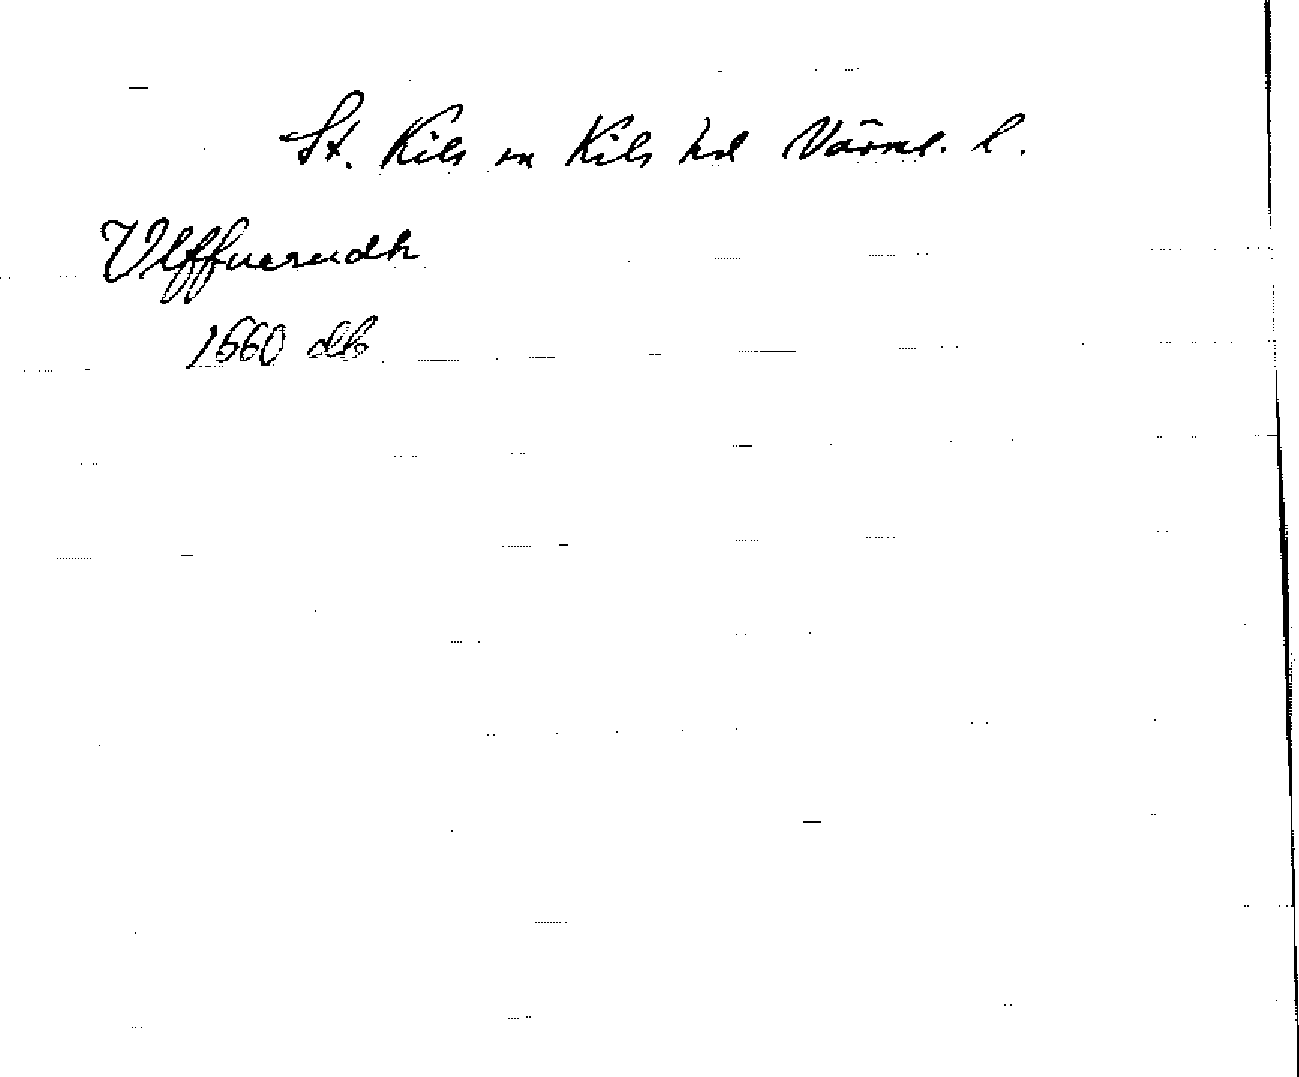 St. Kils sn Kils hd Värml. l.
Ulffuerudh
1660 db